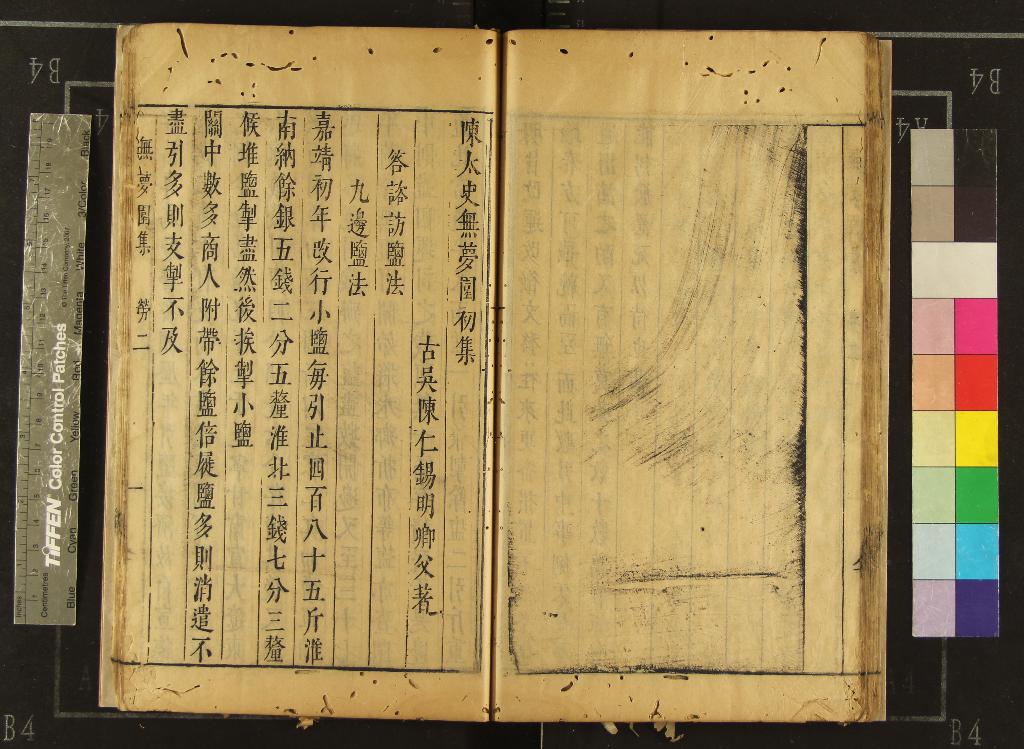 陳太史無夢園初集
古吳陳仁錫明卿父著
答諮訪鹽法
九邊鹽法
嘉靖初年改行小鹽每引止四百八十五斤淮
南納餘銀五錢二分五釐淮北三錢七分三釐
候堆鹽掣盡然後挨掣小鹽
關中數多商人附帶餘鹽倍屣鹽多則消遣不
盡引多則支掣不及
無夢園集 勞二 一
TIFFEN Color Control Patches
© The Tiffen Company, 2007
Blue Cyan Green Yellow Red Magenta White 3/Color Black
Inches
Centimetres
B4
B4
B4
B4
A4
A4